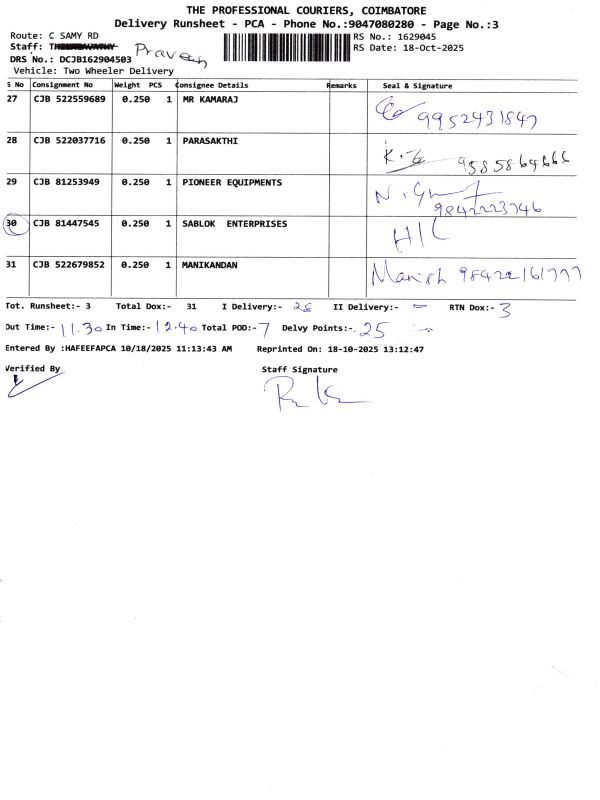 THE PROFESSIONAL COURIERS, COIMBATORE
Delivery Runsheet - PCA - Phone No.:9047080280 - Page No.:3
Route: C SAMY RD RS No.: 1629045
Staff: Praveen RS Date: 18-Oct-2025
DRS No.: DCJB162904503
Vehicle: Two Wheeler Delivery
S No Consignment No Weight PCS Consignee Details Remarks Seal & Signature
27 CJB 522559689 0.250 1 MR KAMARAJ 9952431847
28 CJB 522037716 0.250 1 PARASAKTHI
29 CJB 81253949 0.250 1 PIONEER EQUIPMENTS 9842223746
30 CJB 81447545 0.250 1 SABLOK ENTERPRISES H/C
31 CJB 522679852 0.250 1 MANIKANDAN Manish
Tot. Runsheet:- 3 Total Dox:- 31 I Delivery:- 28 II Delivery:- - RTN Dox:- 3
Out Time:- 11.30 In Time:- 12.40 Total POD:- 7 Delvy Points:- 25
Entered By :HAFEEFAPCA 10/18/2025 11:13:43 AM Reprinted On: 18-10-2025 13:12:47
Verified By Staff Signature